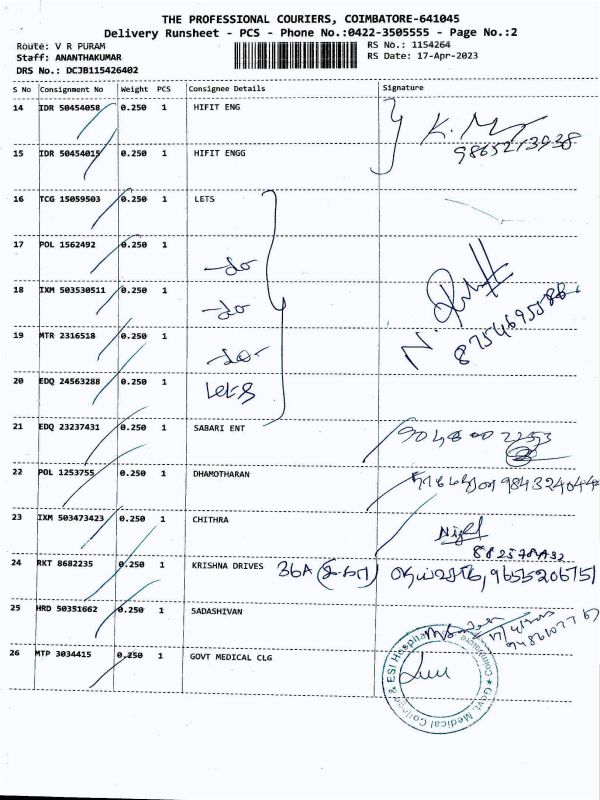 THE PROFESSIONAL COURIERS, COIMBATORE-641045
Delivery Runsheet - PCS - Phone No.:0422-3505555 - Page No.:2
Route: V R PURAM
RS No.: 1154264
Staff: ANANTHAKUMAR
RS Date: 17-Apr-2023
DRS No.: DCJB115426402
S No Consignment No Weight PCS Consignee Details Signature
14 IDR 50454058 0.250 1 HIFIT ENG
9865213938
15 IDR 50454015 0.250 1 HIFIT ENGG
16 TCG 15059503 0.250 1 LETS
17 POL 1562492 0.250 1
-do-
18 IXM 503530511 0.250 1
-do-
19 MTR 2316518 0.250 1
-do-
20 EDQ 24563288 0.250 1
Lets
21 EDQ 23237431 0.250 1 SABARI ENT
22 POL 1253755 0.250 1 DHAMOTHARAN
23 IXM 503473423 0.250 1 CHITHRA
24 RKT 8682235 0.250 1 KRISHNA DRIVES 36A 9655206751
25 HRD 50351662 0.250 1 SADASHIVAN
26 MTP 3034415 0.250 1 GOVT MEDICAL CLG
Govt. Medical College & ESI Hospital